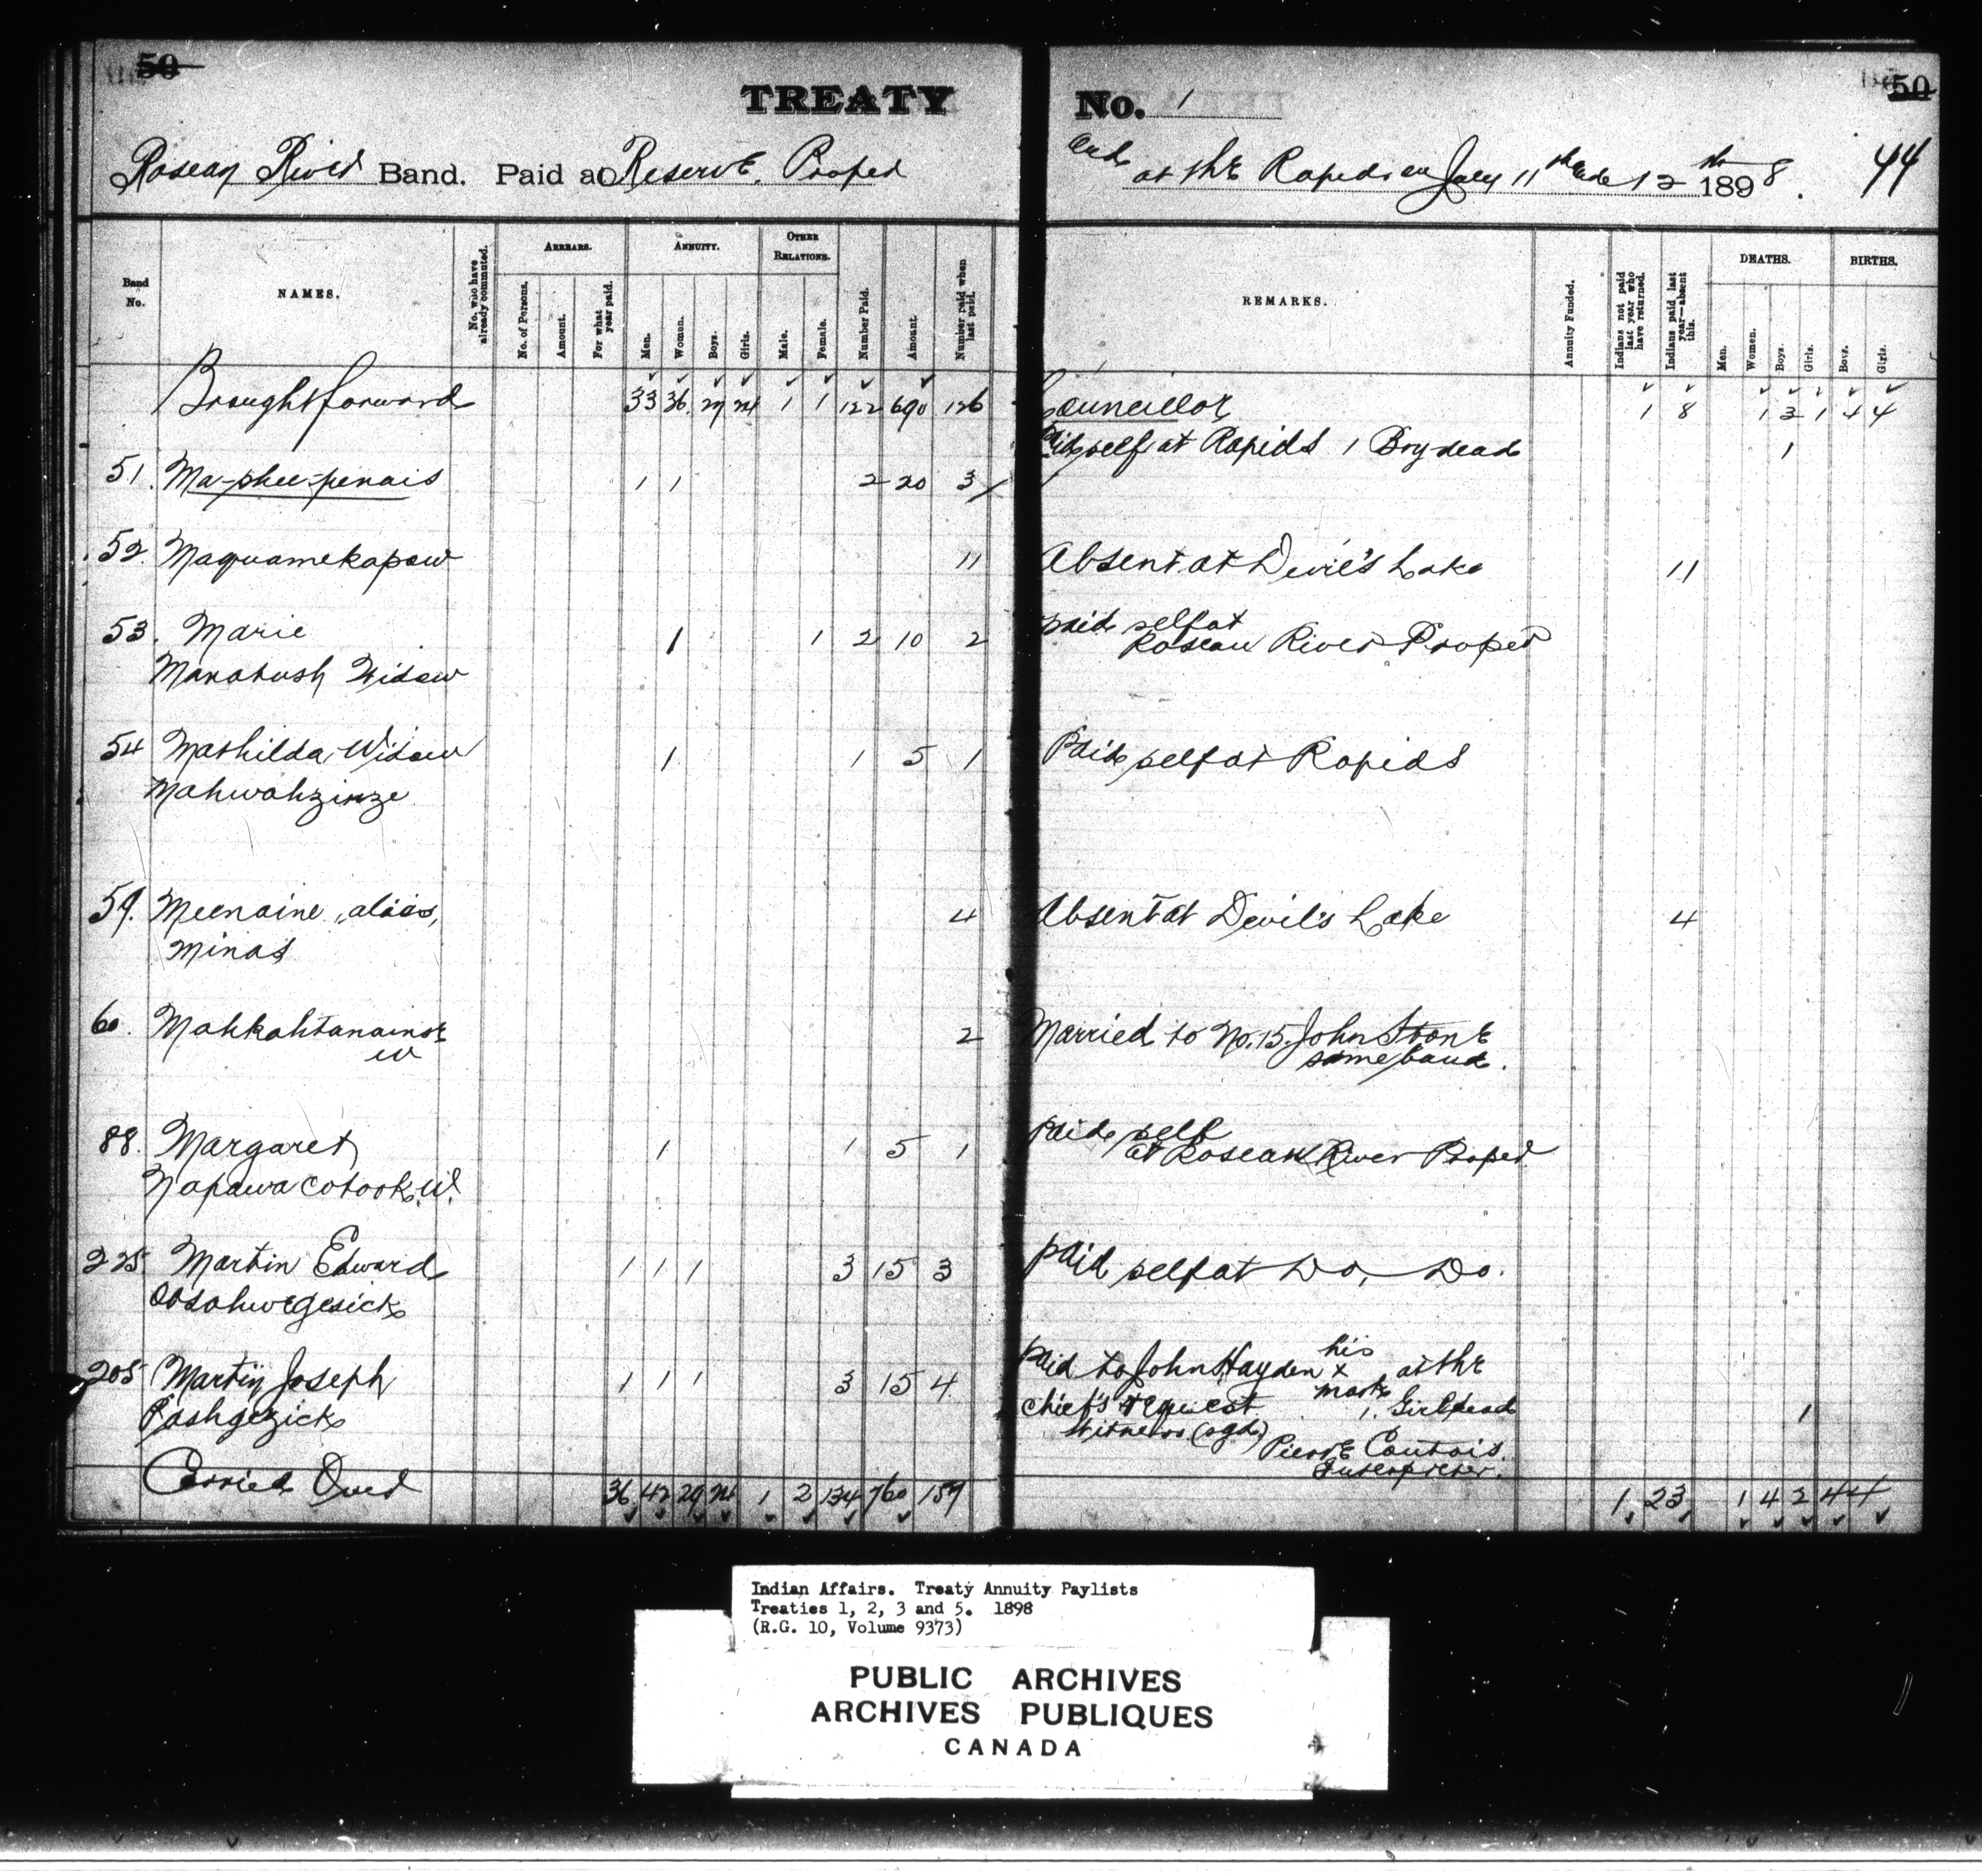 50
TREATY No. 1
50
Roseau River Band. Paid at Reserve, Proper and at the Rapids on July 11th and 12th 1898. 44
Band No.
NAMES.
No. who have already commuted.
ARREARS.
No. of Persons.
Amount.
For what year paid.
ANNUITY.
Men.
Women.
Boys.
Girls.
OTHER RELATIONS.
Male.
Female.
Number Paid.
Amount.
Number paid when last paid.
REMARKS.
Annuity Funded.
Indians not paid last year who have returned.
Indians paid last year—absent this.
DEATHS.
Men.
Women.
Boys.
Girls.
BIRTHS.
Boys.
Girls.
Brought forward 33 36 29 24 1 1 122 690 126 Councillor 1 8 1 3 1 4 4
Paid self at Rapids 1 Boy dead 1
51. Ma-shee-penais 1 1 2 20 3
52. Maquamekapow 11 Absent at Devil's Lake 11
53. Marie 1 1 2 10 2 paid self at
Roseau River Proper
Manatush Widow
54 Mathilda Widow 1 1 5 1 Paid self at Rapids
Mahwahzinze
59. Meenaine "alias, 4 Absent at Devil's Lake 4
Minas
60. Mahkahtanainse 2 Married to No. 15. John Stone
W same band.
88. Margaret 1 1 5 1 paid self
at Roseau River Proper
Napawacotook. W.
225 Martin Edward 1 1 1 3 15 3 paid self at Do, Do.
Oosahwegesick
205 Martin Joseph 1 1 1 3 15 4 Paid to John Hayden his x mark at the
Pashgezick Chief's request 1. Girl dead 1
Witness (sgd) Pierre Contois.
Interpreter.
Carried Over 36 42 29 24 1 2 134 760 157 1 23 1 4 2 4 4
Indian Affairs. Treaty Annuity Paylists
Treaties 1, 2, 3 and 5. 1898
(R.G. 10, Volume 9373)
PUBLIC ARCHIVES
ARCHIVES PUBLIQUES
CANADA